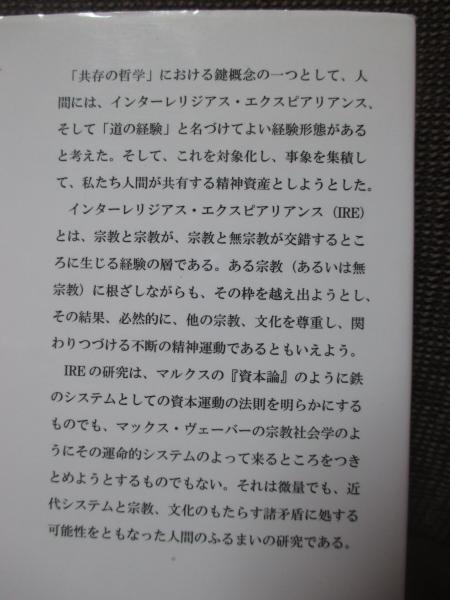 「共存の哲学」における鍵概念の一つとして、人
間には、インターレリジアス・エクスピアリアンス、
そして「道の経験」と名づけてよい経験形態がある
と考えた。そして、これを対象化し、事象を集積し
て、私たち人間が共有する精神資産としようとした。
インターレリジアス・エクスピアリアンス（IRE）
とは、宗教と宗教が、宗教と無宗教が交錯するとこ
ろに生じる経験の層である。ある宗教（あるいは無
宗教）に根ざしながらも、その枠を越え出ようとし、
その結果、必然的に、他の宗教、文化を尊重し、関
わりつづける不断の精神運動であるともいえよう。
IREの研究は、マルクスの『資本論』のように鉄
のシステムとしての資本運動の法則を明らかにする
ものでも、マックス・ヴェーバーの宗教社会学のよ
うにその運命的システムのよって来るところをつき
とめようとするものでもない。それは微量でも、近
代システムと宗教、文化のもたらす諸矛盾に処する
可能性をともなった人間のふるまいの研究である。